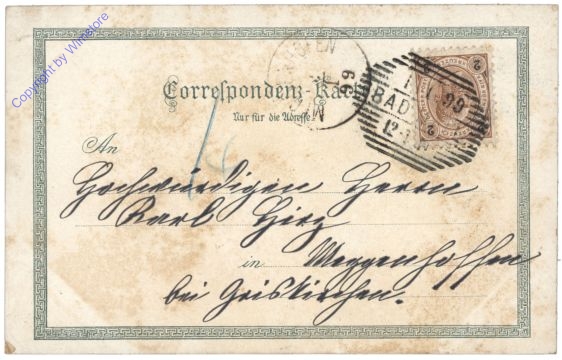 Copyright by Wimstore
Correspondenz-Kar
Nur für die Adresse
An
Hochwürdigen Herrn
Karl Hirz
in Meggenhoffen
bei Geiskirchen.
BAD
99
2
2